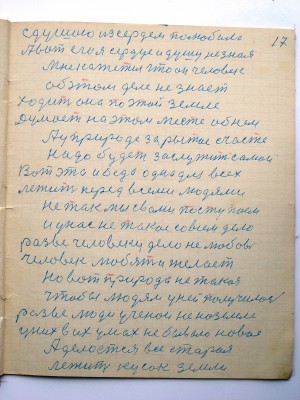 17.
сдушого изсердем полюбила
Авот егоя сердце и душу незная
Мне кажется что ои человек
обэтом деле не знает
ходит она поэтой земле
Думает на этом месте о нем
А уприроде зарытое счасте
Надо будет заслужит самой
Вот это и беда одна для всех
лежит перед всеми людями
не так мы свами поступаем
и унас не такое совсем дело
разве человеку дело не любовь
человек любят и желает
Но вот природа не такая
чтобы людям у ней получилось
разве люди ученои не на земле
у них в их умах небывало новая
А делостся все старая
лежит кусок земли